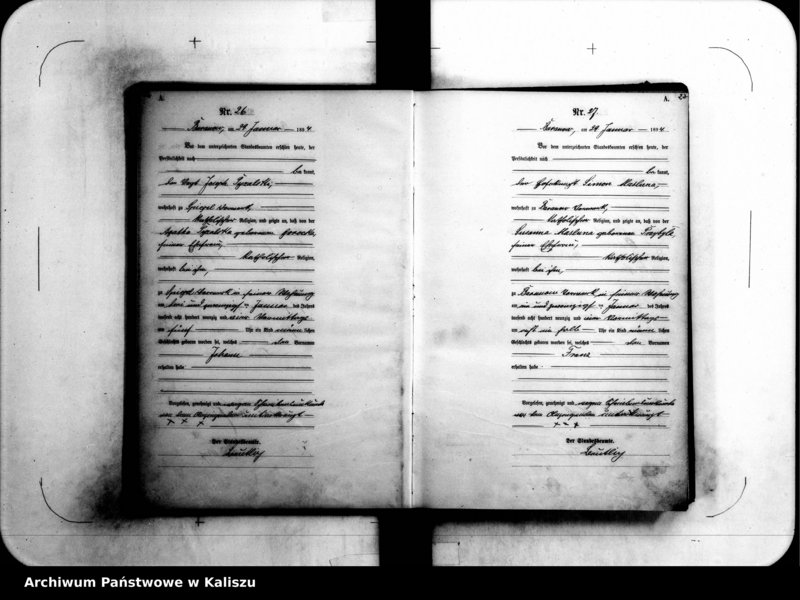 A.
Nr. 26.
Baranow, am 24 Januar 1894
Vor dem unterzeichneten Standesbeamten erschien heute, der
Persönlichkeit nach
bekannt,
der Vogt Joseph
wohnhaft zu Vorwerk,
katholischer Religion, und zeigte an, daß von der
Agatha geborenen
seiner Ehefrau,
katholischer Religion,
wohnhaft bei ihm,
zu Vorwerk in seiner Wohnung
am und zwanzigsten Januar des Jahres
tausend acht hundert neunzig und vier Vormittags
um fünf Uhr ein Kind männlichen
Geschlechts geboren worden sei, welches den Vornamen
Johann
erhalten habe.
Vorgelesen, genehmigt und wegen
von dem Anzeigenden unterkreuzt
x x x
Der Standesbeamte.
A.
Nr. 27.
Baranow, am 24 Januar 1894
Vor dem unterzeichneten Standesbeamten erschien heute, der
Persönlichkeit nach
bekannt,
der Simon Maslana,
wohnhaft zu Baranow Vorwerk,
katholischer Religion, und zeigte an, daß von der
Susanna Maslana geborenen Przybyla,
seiner Ehefrau,
katholischer Religion,
wohnhaft bei ihm,
zu Baranow Vorwerk in seiner Wohnung
am ein und zwanzigsten Januar des Jahres
tausend acht hundert neunzig und vier Vormittags
um Uhr ein Kind männlichen
Geschlechts geboren worden sei, welches den Vornamen
Franz
erhalten habe.
Vorgelesen, genehmigt und wegen
von dem Anzeigenden unterkreuzt
x x x
Der Standesbeamte.
Archiwum Państwowe w Kaliszu